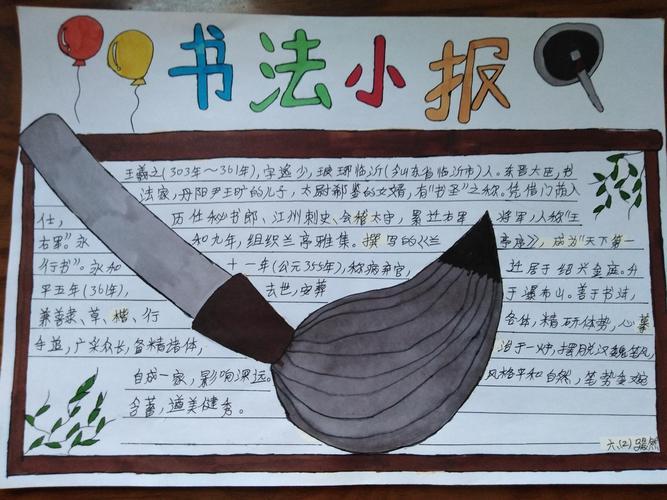 书法小报
王羲之(303年~361年),字逸少,琅琊临沂(今山东省临沂市)人。东晋大臣,书
法家,丹阳尹王旷的儿子,太尉郗鉴的女婿,有"书圣"之称。凭借门荫入
仕, 历任秘书郎、江州刺史、会稽太守,累迁右军 将军,人称"王
右军"永 和九年,组织兰亭雅集。撰写的《兰 亭序》,成为"天下第一
行书"。永和 十一年(公元355年),称病弃官, 迁居于绍兴金庭。升
平五年(361年), 去世,安葬 于瀑布山。善于书法,
兼善隶、草、楷、行 各体,精研体势,心摹
手追,广采众长,备精诸体, 冶于一炉,摆脱汉魏笔风,
自成一家,影响深远。 风格平和自然,笔势委婉
含蓄,遒美健秀。
六、(2)